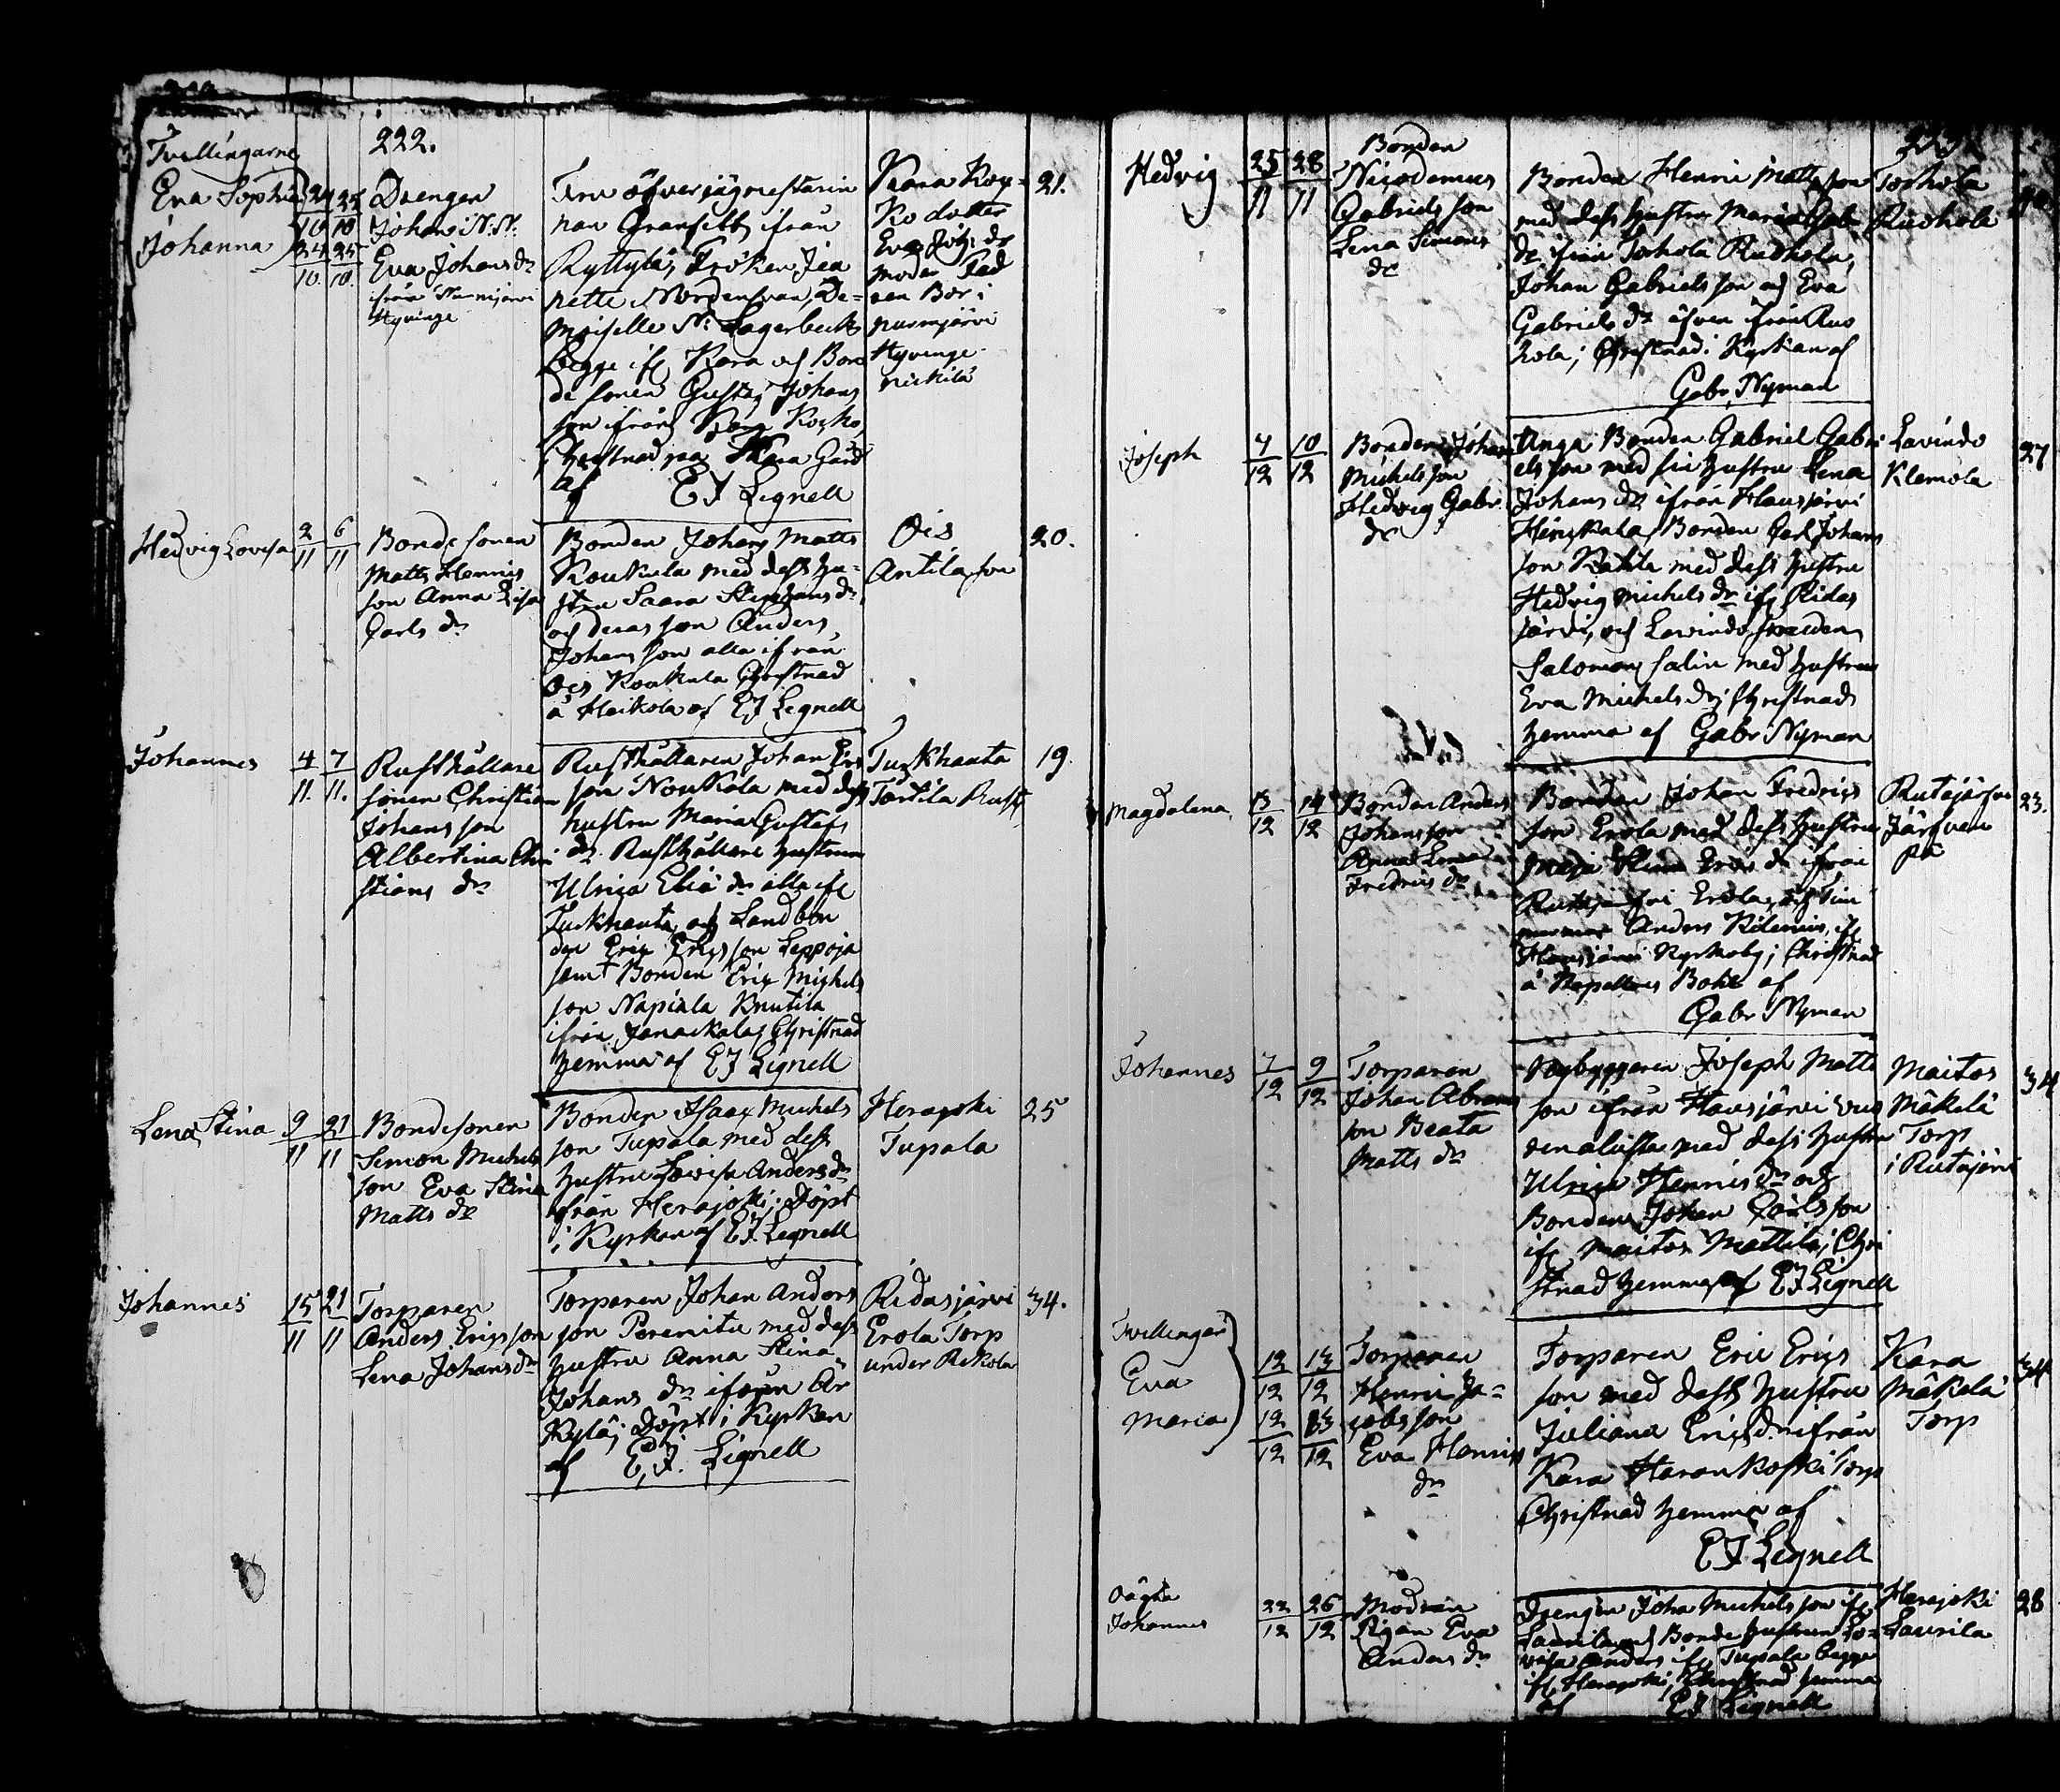 222.
Tvillingarne
Eva Sophia
Johanna
24 25
10 10
24 25
10. 10.
Drengen
Johan N:N:
Eva Johans dr
från Nurmijärvi
Hyvinge
Fru öfverjägmestarin
nan Granfelt ifrån
Ryttylä, Fröken Jea
nette Nordensvan, De-
moiselle N: Lagerbeck
begge if Kara och Bon
de sonen Gustaf Johans
son ifrån Kara
Christnad paa Kara Gård
af E J Lignell
Kara
Eva Joh: dr
moder Fad
ren Bor i
nurmijärvi
Hyvinge
21.
Hedvig Lovisa
2 6
11 11
Bonde sonen
Matts Henrics
son Anna Lisa
Carls dr
Bonden Johan Matts
Koukula med dess hu-
stru Saara Stephans dr
och deras son Anders
Johans son alla ifrån
Ois Koukula Christnad
a Heikola af E J Lignell
Ois
Antila
20.
Johannes
4 7
11. 11.
Rusthållare
sonen Christian
Johans son
Albertina Chri
stians dr
Rusthållaren Johan Erics
son Noukola med dess
hustru Maria Gustafs
dr Rusthållare hustrun
Ulrica Eliæ dr alla if
Turkhauta och Landbon
den Eric Erics son Leppoja
samt Bonden Eric Michels
son Napiala Knutila
ifrån Janackala; Christnad
hemma af E J Lignell
Turkhauta
Torttila Rust
19.
Lena Stina
9 21
11 11
Bondesonen
Simon Michels
son Eva Stina
Matts dr
Bonden Isaac Michels
son Tupala med dess
hustru Lovisa Anders dr
ifrån Herajoki; Döpt
i Kyrkan af E J Lignell
Herajoki
Tupala
25
Johannes
15 21
11 11
Torparen
Anders Erics son
Lena Johans dr
Torparen Johan Anders
son Peremitu med dess
hustru Anna Stina
Johans dr ifrån Ar
Kylä; Döpt i Kyrkan
af E, J. Lignell
Ridasjärvi
Erola Torp
under Rekola
34.
Hedvig
25 28
11 11
Bonden
Nicodemus
Gabriels son
Lena Simons
dr
Bonden Henric Matts son
med dess hustru Maria Gab
dr ifrån Torhola Ruohola,
Johan Gabriels son och Eva
Gabriels dr äfven ifrån Ruo
hola; Christnad i Kyrkan af
Gabr. Nyman
Torhola
Ruohola
Joseph
7 10
12 12
Bonden Johan
Michels son
Hedvig Gabr.
dr
Unga Bonden Gabriel Gabri
els son med sin hustru Lena
Johans dr ifrån Hausjärvi
Bonden Carl Johans
son med dess hustru
Hedvig Michels dr if Ridas
järvi, och Lavindo
Salomon Salin med hustrun
Eva Michels dr; Christnad
hemma af Gabr Nyman
Lavindo
Klemola
27
Magdalena
13 14
12 12
Bonden Anders
Johans son
Anna Lena
Fredrics dr
Bonden Johan Fredrics
son Erola med dess hustru
Maja Stina Erics dr ifrån
Erola, och
Anders Kilenius, if
Hausjärvi Kyrkoby; Christnad
å Kapellans Bohl af
Gabr Nyman
Rutajärfvi
Järfven
pä
23.
Johannes
7 9
12 12
Torparen
Johan Abrams
son Beata
Matts dr
Nybyggaren Joseph Matts
son ifrån Hausjärvi
med dess hustru
Ulrica Henrics dr och
Bonden Johan Carls son
if Maitos Mattila; Chri
stnad hemma af E J Lignell
Maitos
Mäkelä
Torp
i Rutajärvi
34
Tvillingar
Eva
Maria
12 13
12 12
12 13
12 12
Torparen
Henric Ja-
cobs son
Eva Henrics
dr
Torparen Eric Erics
son med dess hustru
Juliana Erics dr ifrån
Kara Haran Koski Torp
Christnad hemma af
E J Lignell
Kara
Mäkelä
Torp
34
Oägta
Johannes
22 26
12 12
Modren
Pigan Eva
Anders dr
Drengen Joha Michels son if
Laurila och Bonde hustrun Lo-
visa Anders if Tupala begge
if Herajoki; Christnad hemma
af E J Lignell
Herajoki
Laurila
28